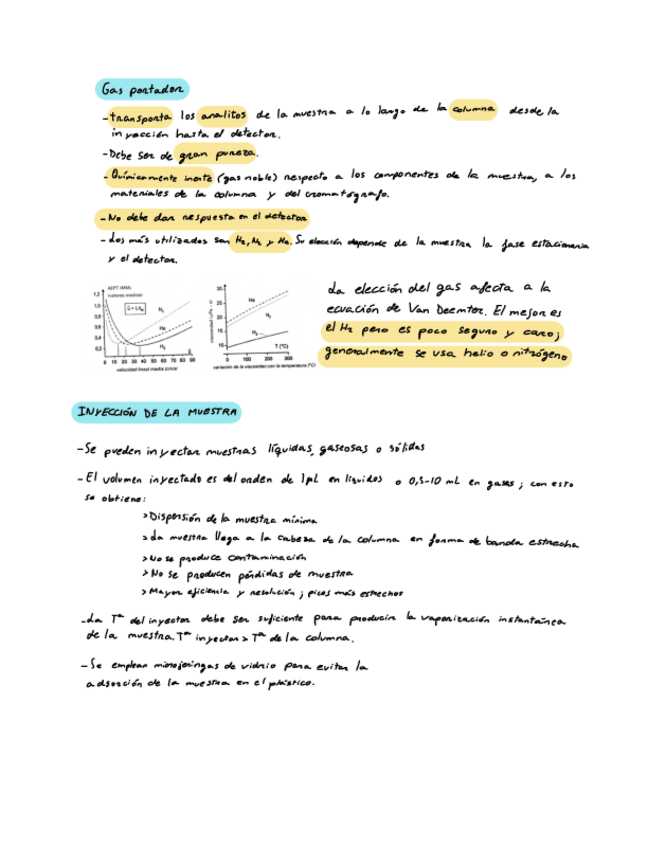 Gas portador
- transporta los analitos de la muestra a lo largo de la columna desde la
inyección hasta el detector.
- Debe ser de gran pureza.
- Químicamente inerte (gas noble) respecto a los componentes de la muestra, a los
materiales de la columna y del cromatógrafo.
- No debe dar respuesta en el detector
- Los más utilizados son H₂, N₂ y He. Su elección depende de la muestra la fase estacionaria
y el detector.
AEPT (MM)
(valores medios)
1,2
1,0
0,8
0,6
0,4
0,2
N₂
He
H₂
0 10 20 30 40 50 60 70 80 90
velocidad lineal media (cm/s)
30
25
20
15
10
He
N₂
H₂
T (°C)
0 100 200 300
variación de la viscosidad con la temperatura (°C)
La elección del gas afecta a la
ecuación de Van Deemter. El mejor es
el H₂ pero es poco seguro y caro;
generalmente se usa helio o nitrógeno
INYECCIÓN DE LA MUESTRA
- Se pueden inyectar muestras líquidas, gaseosas o sólidas
- El volumen inyectado es del orden de 1μL en líquidos o 0,5-10 mL en gases; con esto
se obtiene:
> Dispersión de la muestra mínima
> La muestra llega a la cabeza de la columna en forma de banda estrecha
> No se produce contaminación
> No se producen pérdidas de muestra
> Mayor eficiencia y resolución; picos más estrechos
- La Tª del inyector debe ser suficiente para producir la vaporización instantánea
de la muestra. Tª inyector > Tª de la columna.
- Se emplean microjeringas de vidrio para evitar la
adsorción de la muestra en el plástico.